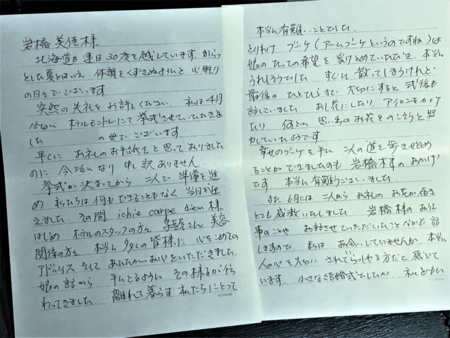 岩橋 美佳 様
北海道も連日30度を越しています からっ
とした夏とはいえ 体調をくずさぬようにと 心配り
の日々でございます
突然のお礼をお許しください 私は4月
15日に ホテルモントレにて挙式させていただきま
した の母でございます
早くに お礼のお手紙をと思っておりました
のに 今頃になり 申し訳ありません
挙式が決まってから 二人で 準備を進
め 私たちは何もできることもなく 当日が迎
えました その間 ichie carpe diem 様
はじめ ホテルのスタッフの方 美容
関係の方 本当に多くの皆様に 心をこめての
アドバイス そして あたたかい をいただきました
娘の話から 手にとるように その様子が伝
わってきました 離れて暮らす 私たちにとって
本当に有難いことでした
とりわけ ブーケ(アームブーケというのですね)は
娘のたっての希望を 受けとめていただき 本当に
うれしそうでした すぐに 散ってしまうけれど
最後の ひとひらまで 大切にすると 式後も
話していました お花にしたり アイロンをかけ
たり 何とか 思い出のお花を のこそうと
していたようです
幸せのブーケを手に 二人の道を歩き始め
ることができましたのも 岩橋様のおかげ
です 本当に有難うございました
また、6月には 二人からお礼の お花が届き
とても感激いたしました 岩橋様のお仕
事のことや お
しますので 私は お会いしていませんが 本当に
人の心を大切に されていらっしゃる方だと 感じて
います 小さな結婚式でしたが